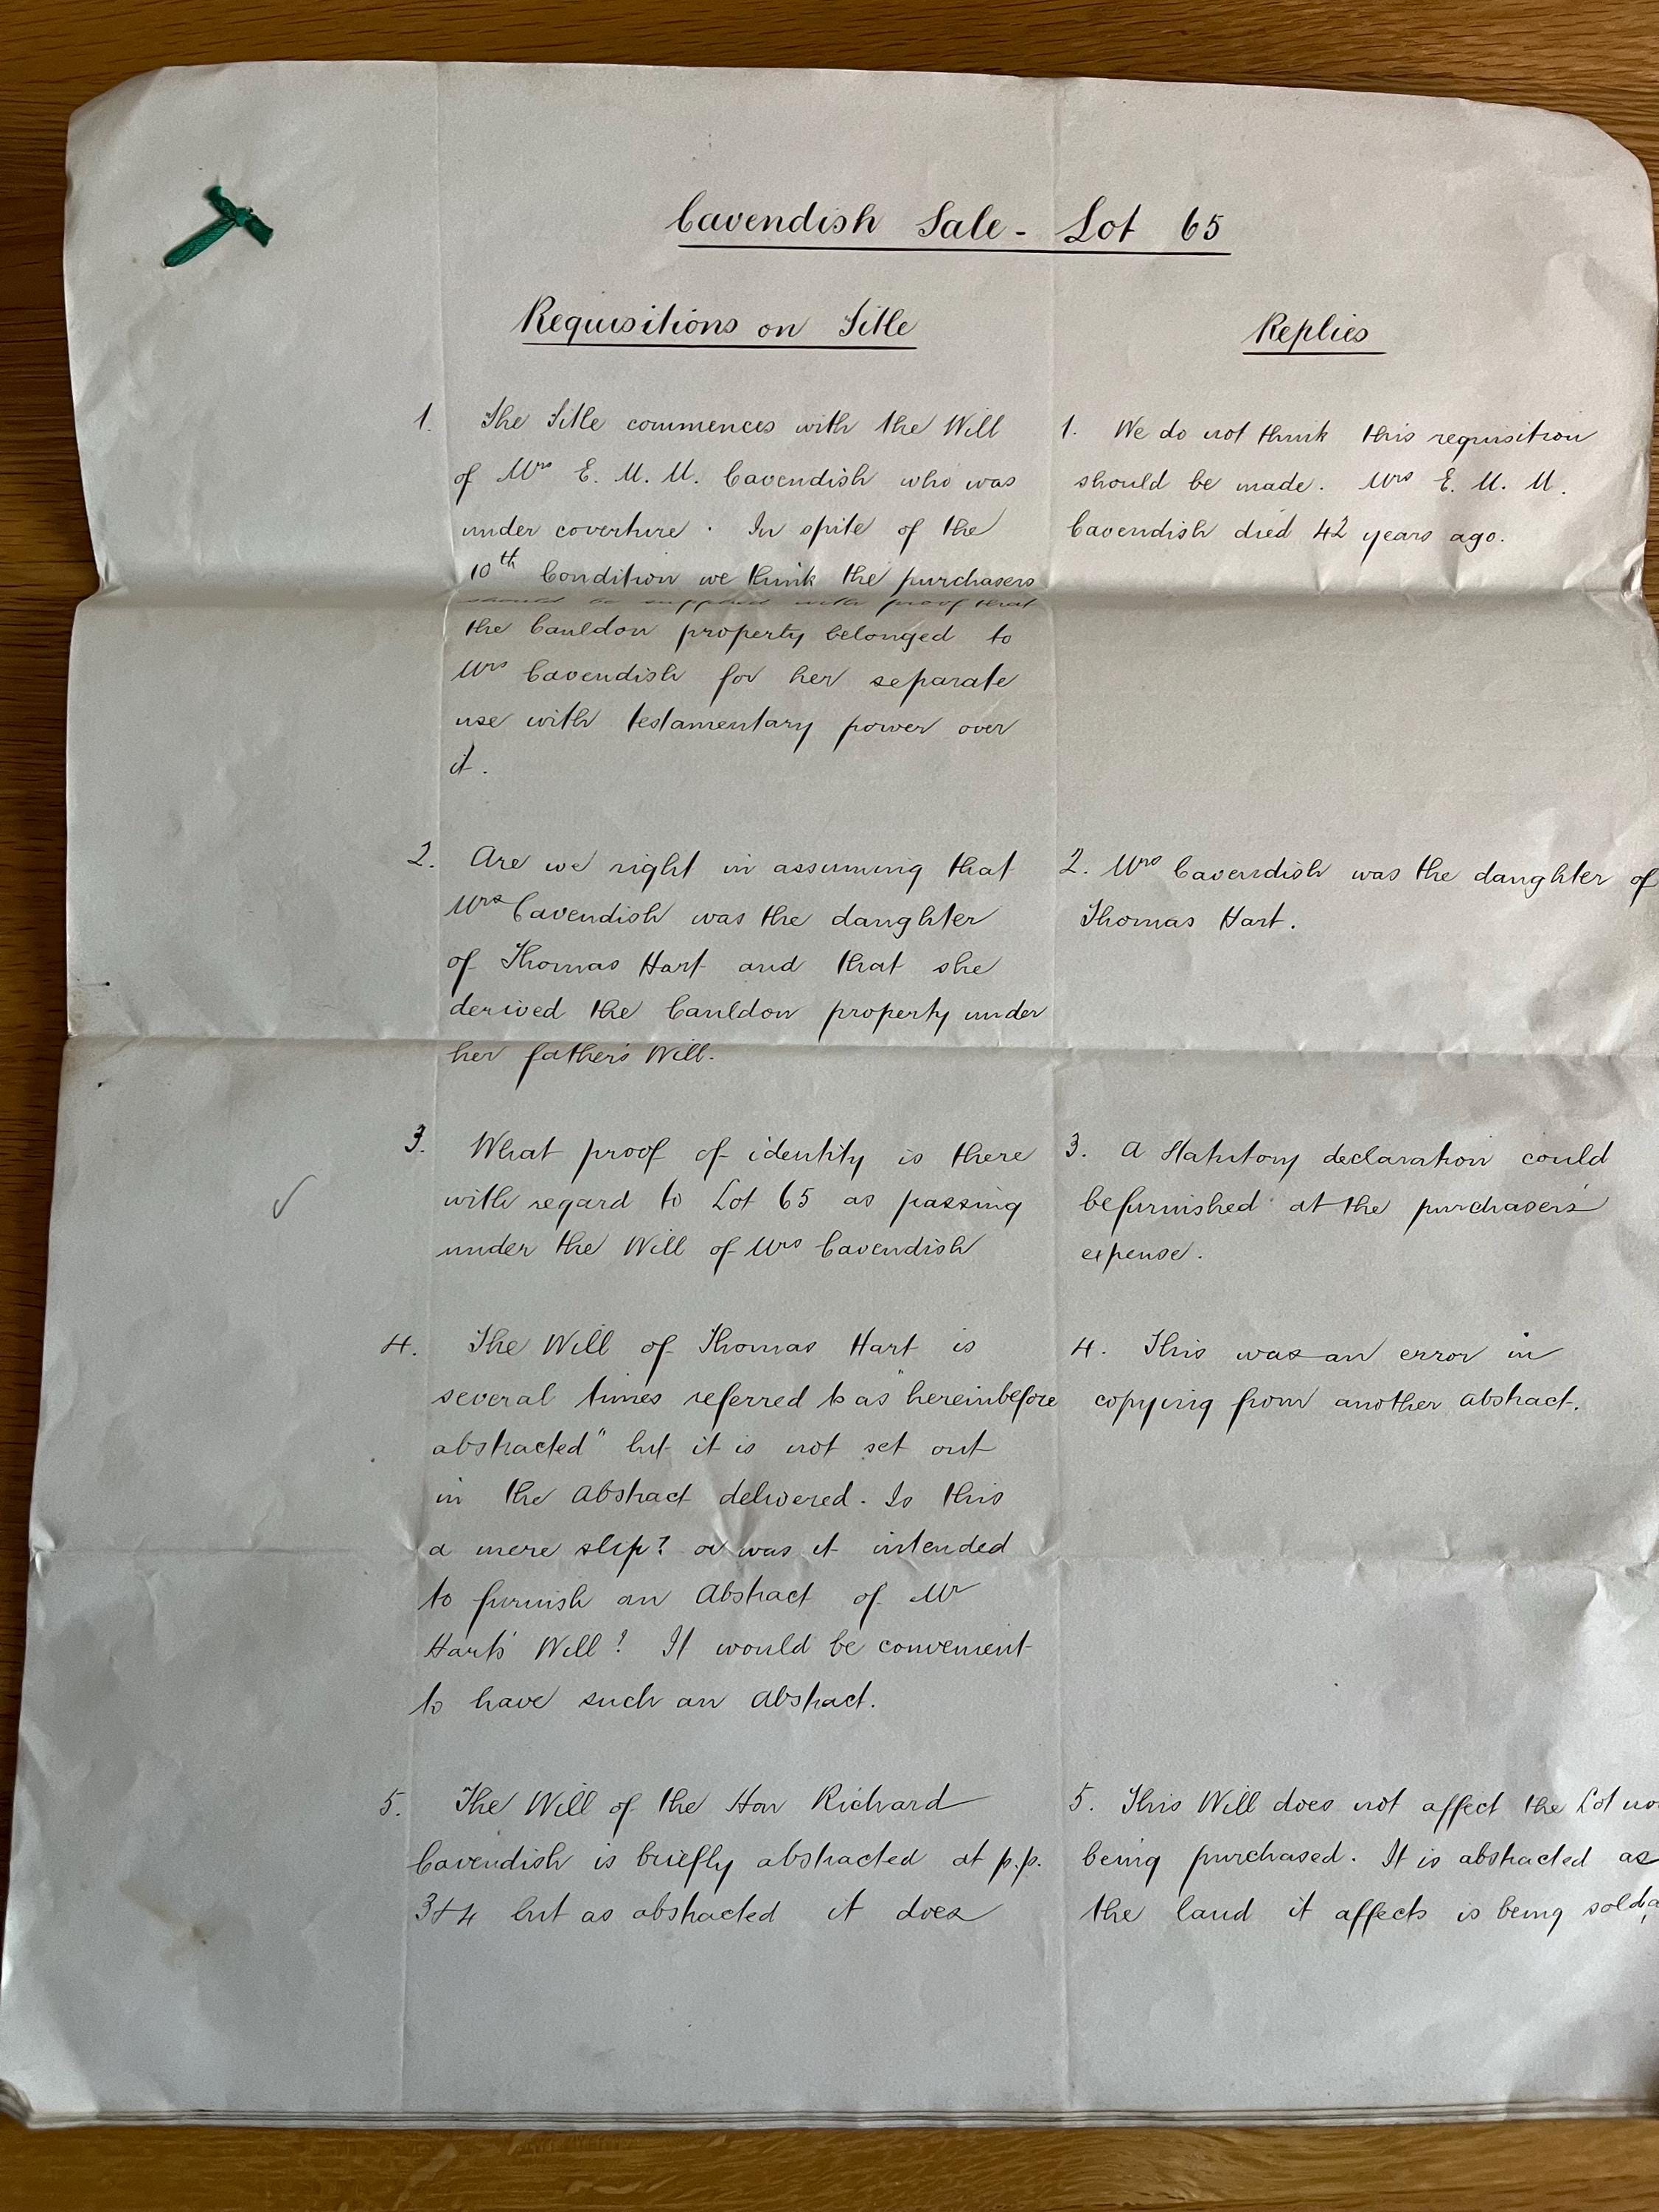 Cavendish Sale - Lot 65
Requisitions on Title
Replies
1. The Title commences with the Will
of Mrs E. M. M. Cavendish who was
under coverture. In spite of the
10th Condition we think the purchasers
should be supplied with proof that
the Cauldon property belonged to
Mrs Cavendish for her separate
use with testamentary power over
it.
1. We do not think this requisition
should be made. Mrs E. M. M.
Cavendish died 42 years ago.
2. Are we right in assuming that
Mrs Cavendish was the daughter
of Thomas Hart and that she
derived the Cauldon property under
her father's Will.
2. Mrs Cavendish was the daughter of
Thomas Hart.
3. What proof of identity is there
with regard to Lot 65 as passing
under the Will of Mrs Cavendish
3. A Statutory declaration could
be furnished at the purchaser's
expense.
4. The Will of Thomas Hart is
several times referred to as "hereinbefore
abstracted" but it is not set out
in the Abstract delivered. Is this
a mere slip? or was it intended
to furnish an Abstract of Mr
Hart's Will? It would be convenient
to have such an Abstract.
4. This was an error in
copying from another abstract.
5. The Will of the Hon Richard
Cavendish is briefly abstracted at p.p.
3 & 4 but as abstracted it does
5. This Will does not affect the Lot
being purchased. It is abstracted as
the land it affects is being sold